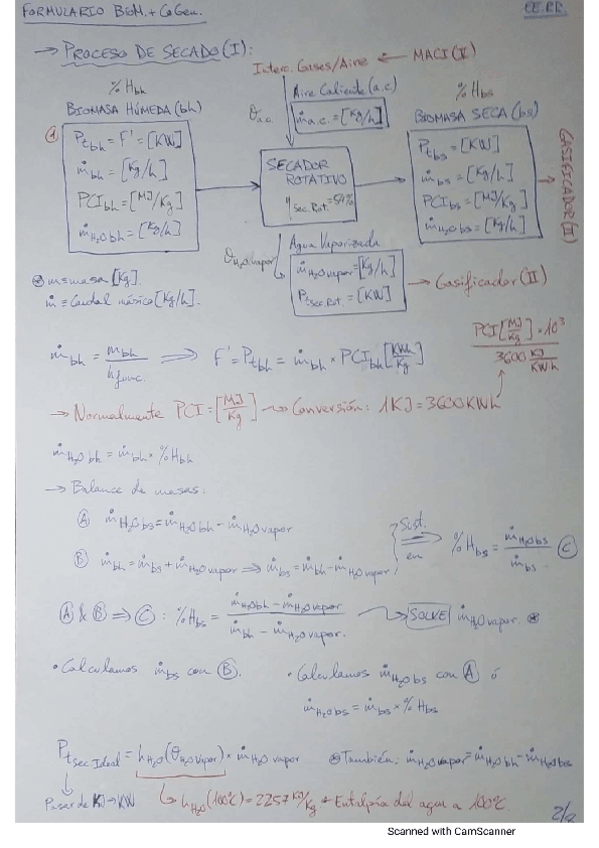 FORMULARIO BIOM. + CoGen.
EE.RR.
→ PROCESO DE SECADO (I):
Interc. Gases/Aire ← MACI (V)
% Hbh
Aire Caliente (a.c.)
% Hbs
BIOMASA HÚMEDA (bh)
θa.c.
ṁa.c. = [Kg/h]
BIOMASA SECA (bs)
① Ptbh = F' = [KW]
ṁbh = [Kg/h]
PCIbh = [MJ/Kg]
ṁH₂O bh = [Kg/h]
SECADOR
ROTATIVO
ηsec.Rot. = 54%
Ptbs = [KW]
ṁbs = [Kg/h]
PCIbs = [MJ/Kg]
ṁH₂O bs = [Kg/h]
GASIFICADOR (II)
θH₂O vapor
Agua Vaporizada
ṁH₂O vapor = [Kg/h]
Ptsec.Rot. = [KW]
→ Gasificador (II)
⊛ m ≡ masa [Kg].
ṁ ≡ Caudal másico [Kg/h].
ṁbh = mbh / hfunc. ⟹ F' = Ptbh = ṁbh × PCIbh [KWh/Kg]
PCI [MJ/Kg] · 10³ / 3600 KJ/KWh
→ Normalmente PCI = [MJ/Kg] → Conversión: 1KJ = 3600KWh
ṁH₂O bh = ṁbh × % Hbh
→ Balance de masas:
Ⓐ ṁH₂O bs = ṁH₂O bh - ṁH₂O vapor
Ⓑ ṁbh = ṁbs + ṁH₂O vapor ⟹ ṁbs = ṁbh - ṁH₂O vapor
Sist. en ⟹ % Hbs = ṁH₂O bs / ṁbs Ⓒ
Ⓐ & Ⓑ ⟹ Ⓒ : % Hbs = (ṁH₂O bh - ṁH₂O vapor) / (ṁbh - ṁH₂O vapor.) → SOLVE ṁH₂O vapor. ⊛
• Calculamos ṁbs con Ⓑ.
• Calculamos ṁH₂O bs con Ⓐ ó
ṁH₂O bs = ṁbs × % Hbs
Ptsec Ideal = hH₂O (θH₂O vapor) × ṁH₂O vapor
⊛ También: ṁH₂O vapor = ṁH₂O bh - ṁH₂O bs
Pasar de KJ → KW
hH₂O (100°C) = 2257 KJ/Kg * Entalpía del agua a 100°C.
Scanned with CamScanner